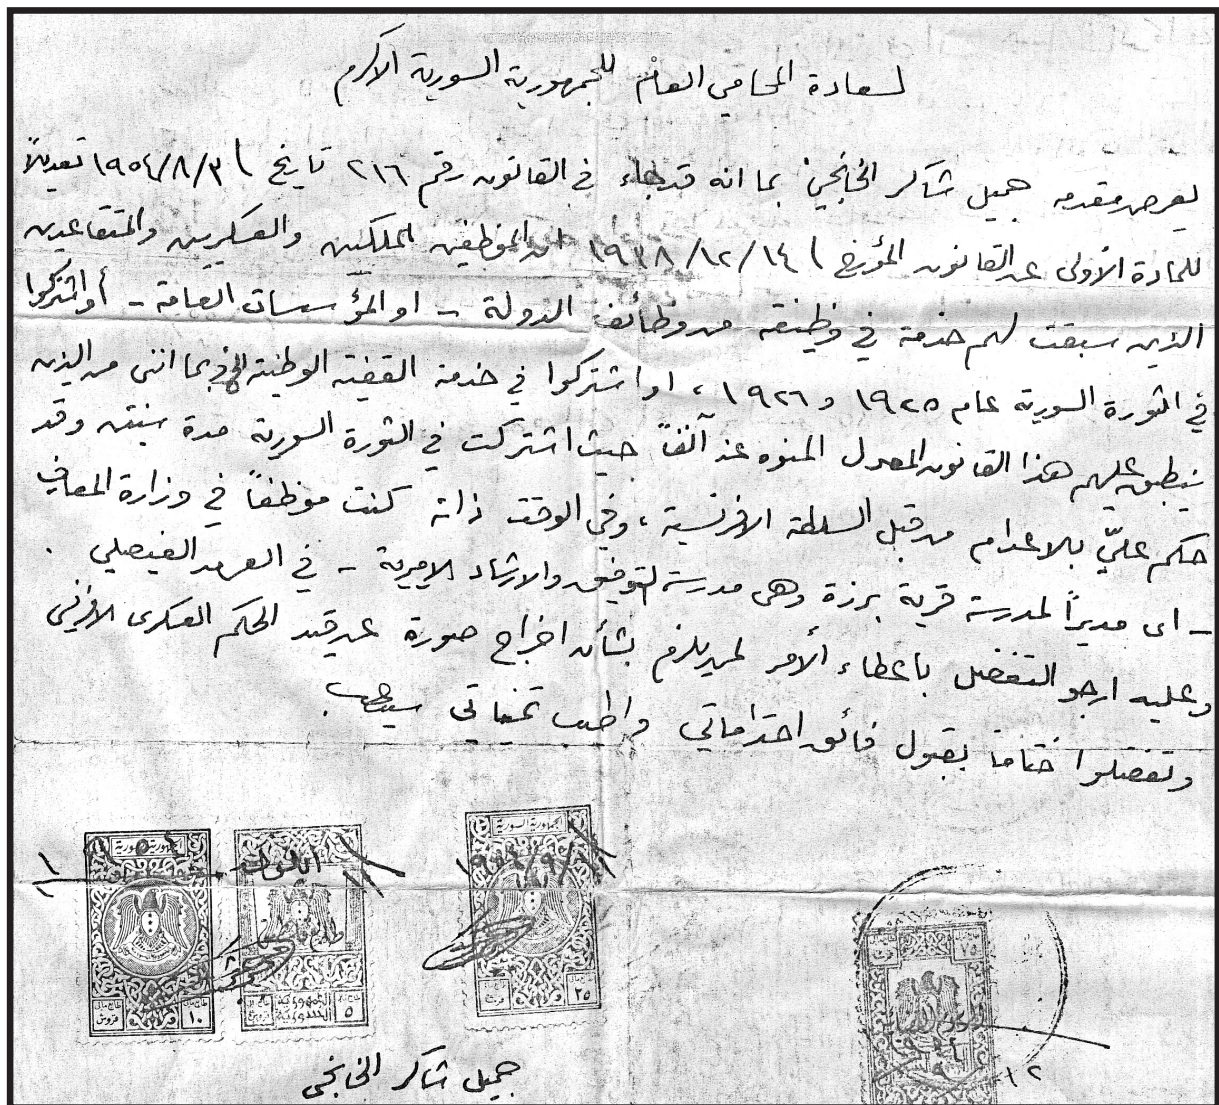 لسعادة المحامي العام للجمهورية السورية الاكرم
يعرض مقدمه جميل شاكر الخانجي بما انه قد جاء في القانون رقم ٢١٦ تاريخ ٣/٨/١٩٥٤ تعديلاً
للمادة الاولى عن القانون المؤرخ ١٤/١٢/١٩٣٨ ان الموظفين الملكيين والعسكريين والمتقاعدين
الذين سبقت لهم خدمة في وظيفة من وظائف الدولة - او المؤسسات العامة - أو اشتركوا
في الثورة السورية عام ١٩٢٥ و ١٩٢٦ ، او اشتركوا في خدمة القضية الوطنية الخ وبما انني من الذين
ينطبق عليهم هذا القانون المعدل المنوه عنه آنفاً حيث اشتركت في الثورة السورية مدة سنتين وقد
حكم عليّ بالاعدام من قبل السلطة الافرنسية ، وفي الوقت ذاته كنت موظفاً في وزارة المعارف
- اى مديراً لمدرسة قرية برزة وهى مدرسة التوفيق والارشاد الاميرية - في العهد الفيصلي .
وعليه ارجو التفضل باعطاء الأمر لمن يلزم بشأن اخراج صورة عن قيد الحكم العسكرى الافرنسي
وتفضلوا ختاماً بقبول فائق احتراماتي واطيب تمنياتي سيدي
جمهورية سورية
الجمهورية السورية
١٠
قروش
٥
٢٥
جميل شاكر الخانجى